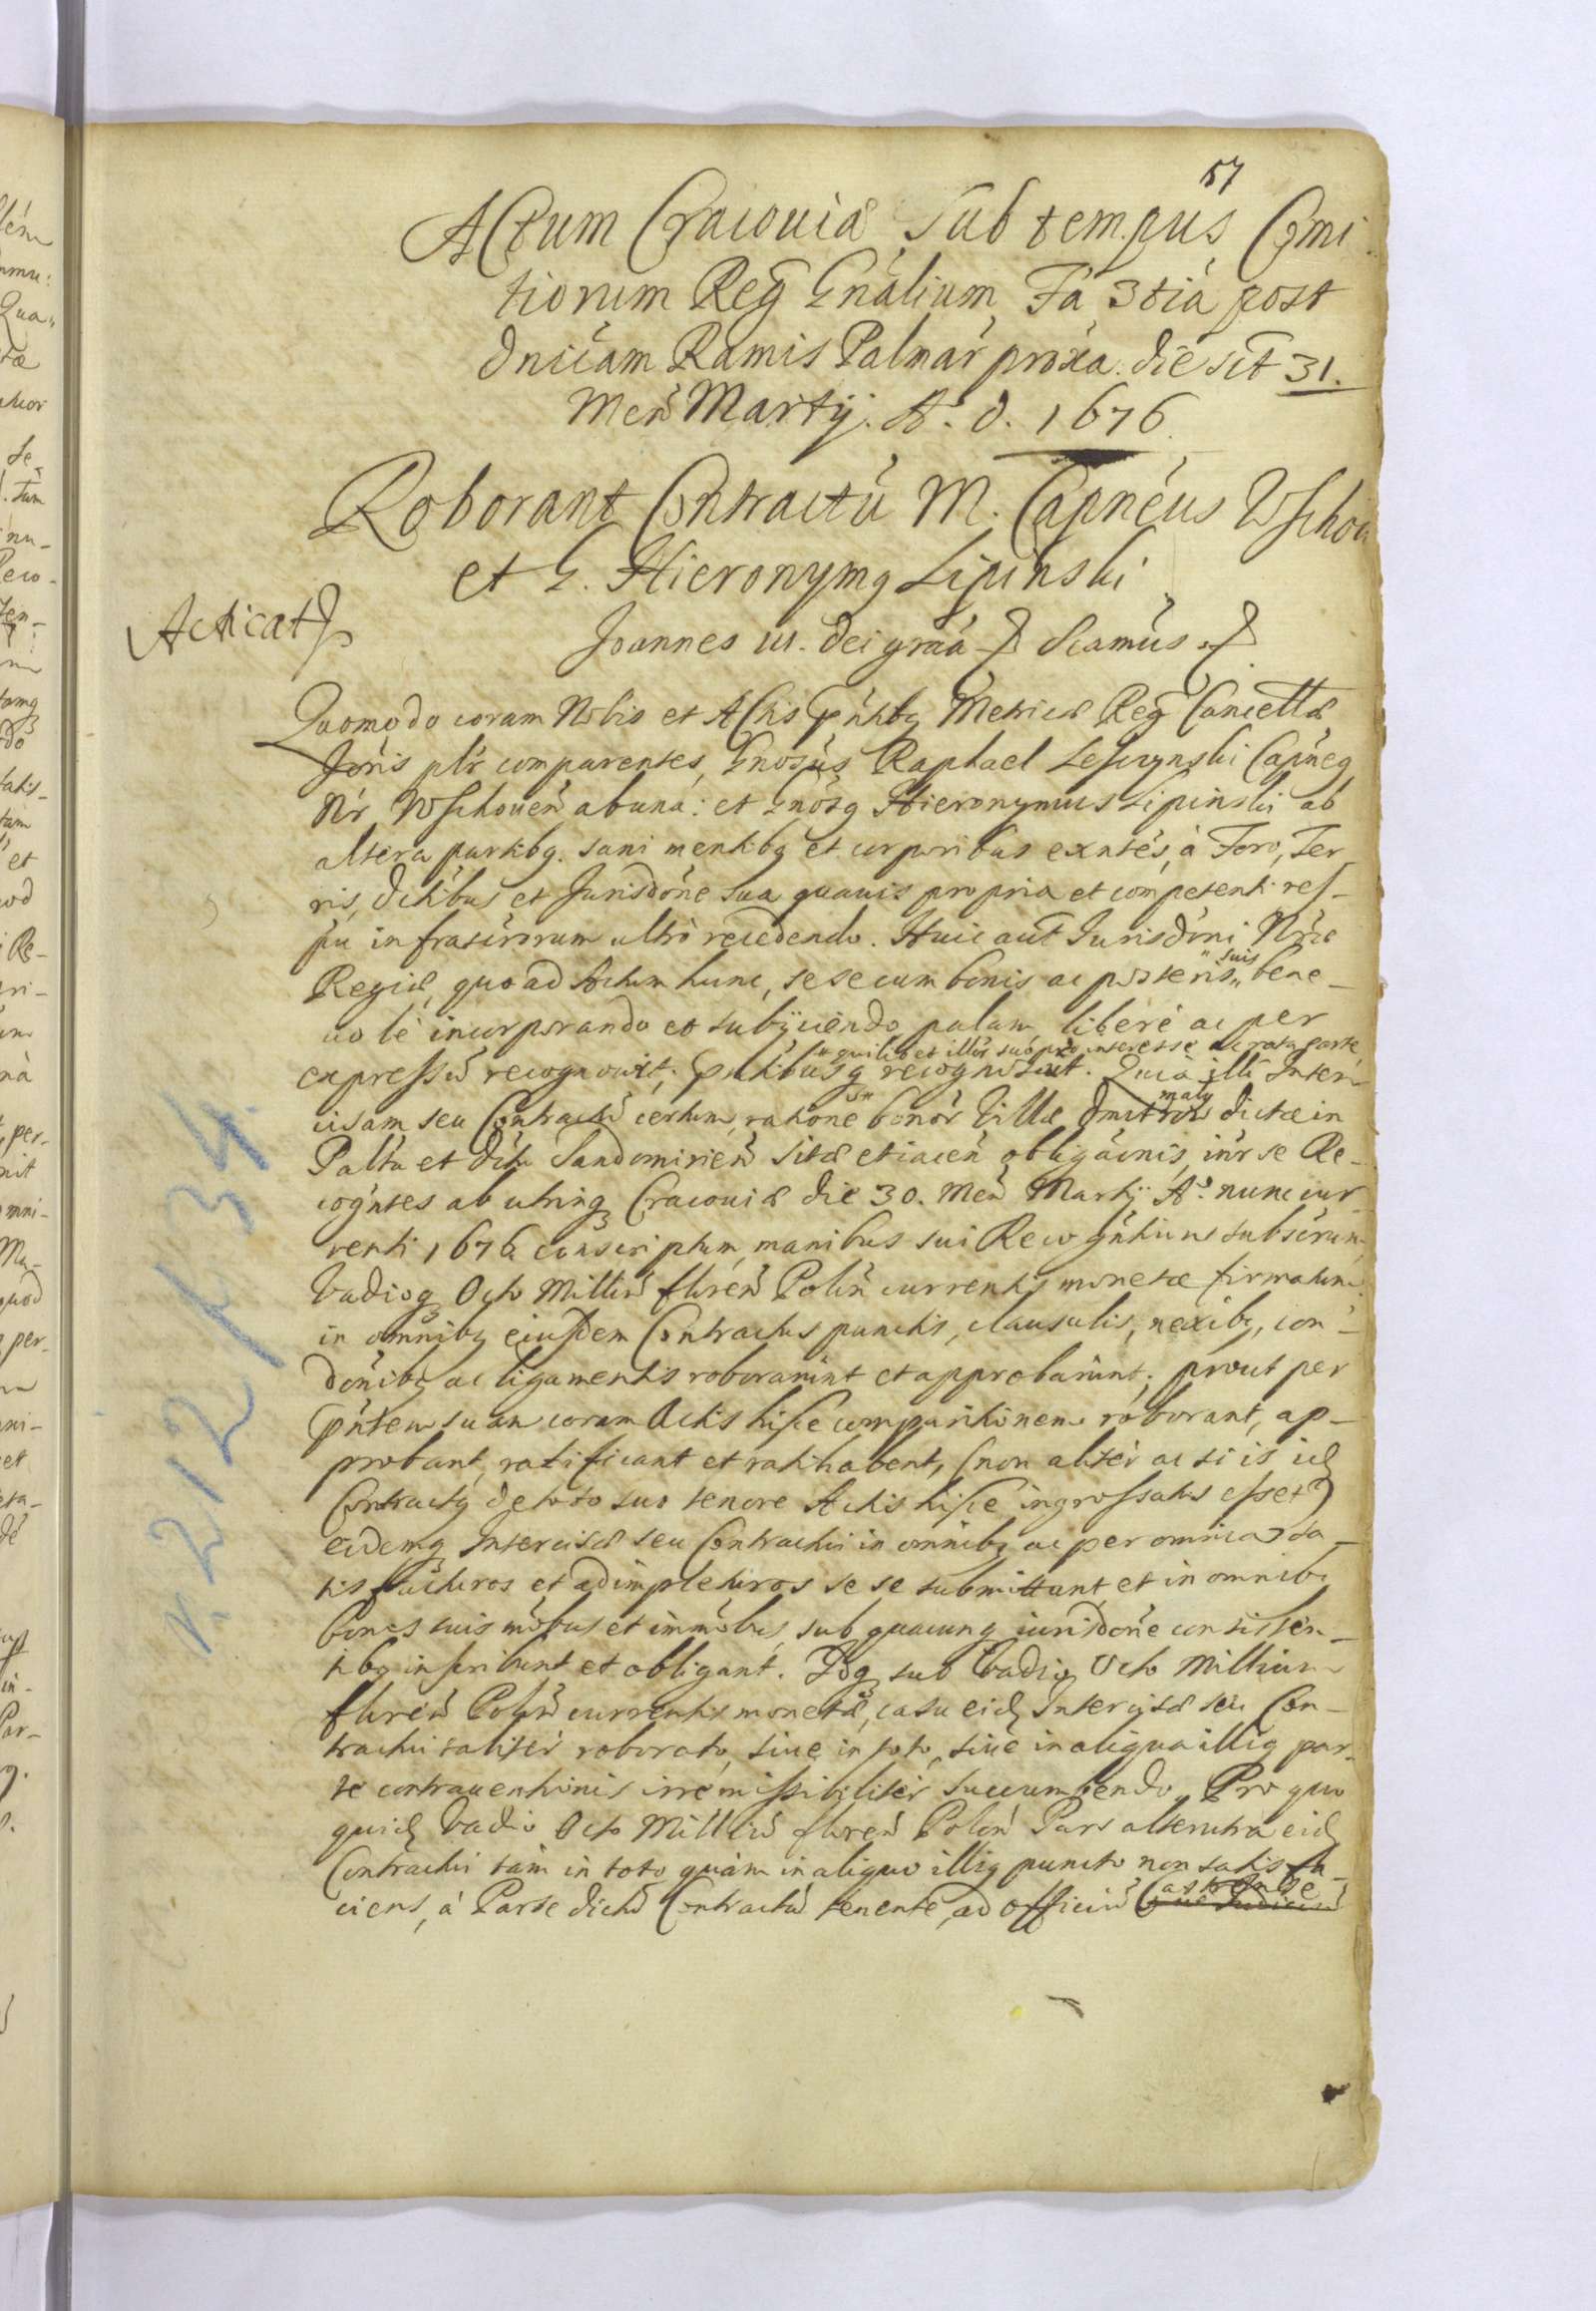 57
Actum Cracoviæ Sub tempus Comi
tiorum Reg Gnalium Fa 3tia post
dnicam Ramis Palmar proxa. die sct 31.
Men Martij. Ao. d. 1676
Roborant Contractu M. Capneus Wschou
et G. Hieronymq Lipinski
Acticat
Joannes III. dei graa Scamus
Quomodo coram Nobis et Actis pntbq Metricæ Reg Cancellæ
Joris plr comparentes, Gnosus Raphael Lesczynski Capneq
Nr Wschouen ab una: et Gnosq Hieronymus Lipinski ab
altera partibq. sani mentibq et corporibus exntes, à Foro, Ter
ris, dctibus et Jurisdone sua quavis propria et competenti res-
pu infrascrorum ultrò recedendo. Huic aut Jurisdoni Nræ
Regiæ, quo ad Actum hunc, sese cum bonis ac posteris suis bene-
uole incorporando et subijciendo, palam liberè ac per
quilibet illor suo pro interesse ac rata parte
expressu recognouit; pntibusq recognoscunt. Quia illi Inter
cisam seu Contractu certum, ratione bonor Villæ dmitrow maly dictæ in
Paltu et dctu Sandomirien sitæ et iacen obligaonis, inr se Re-
cogntes ab utrinq Cracouiæ die 30. Men Martij Ao. nunc cur
renti 1676 conscriptum, manibus sui Recogntium subscrum
Vadioq Octo Milliu floren Polon currentis monetæ firmatum
in omnibq eiusdem Contractus punctis, clausulis, nexibq, con-
donibq ac ligamentis roborarunt et approbarunt; prout per
pntem suam coram Actis hisce comparitionem roborant, ap-
probant, ratificant et ratihabent, (non aliter ac si is id
Contractq de toto suo tenore Actis hisce ingrossatus esset)
eidemq Intercisæ seu Contractui in omnibq ac per omnia sa-
tisfacturos et adimpleturos se se submittunt, et in omnibq
bonis suis mobus et immobus, sub quacunq iurisdone consisten-
tibq inscribunt et obligant. Idq sub Vadio Octo Millium
floren Polon currentis monetæ, casu eid Intercisæ seu Con-
tractui taliter roborato, siue in toto, siue in aliqua illiq par-
te contrauentionis irremissibiliter succumbendo. Pro quo
quid Vadio Octo Milliu floren Polon Pars alterutra eid
Contractui tàm in toto quàm in aliquo illiq puncto non satis fa-
ciens, à Parte dictu Contractu tenente, ad officiu Castrense
1. 212 / K 34